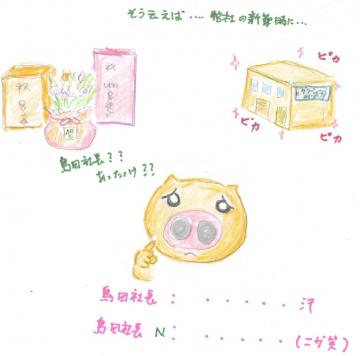 そう云えば‥‥弊社の新築時に…
ピカ
ピカ
ピカ
ピカ
祝
祝
島田社長??
あったっけ??
島田社長: ・・・・・汗
島田社長N: ・・・・・(ニガ笑)